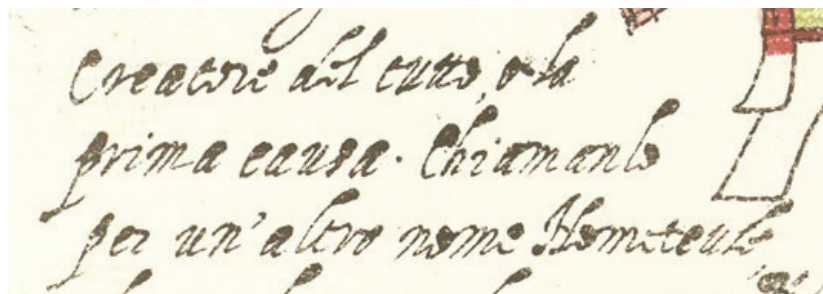 Creatore del tutto, o la
prima causa. Chiamanlo
per un'altro nome Hometeule